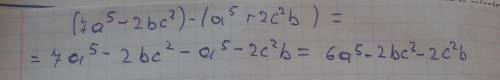 (7a⁵-2bc²)-(a⁵+2c²b)=
=7a⁵-2bc²-a⁵-2c²b=6a⁵-2bc²-2c²b